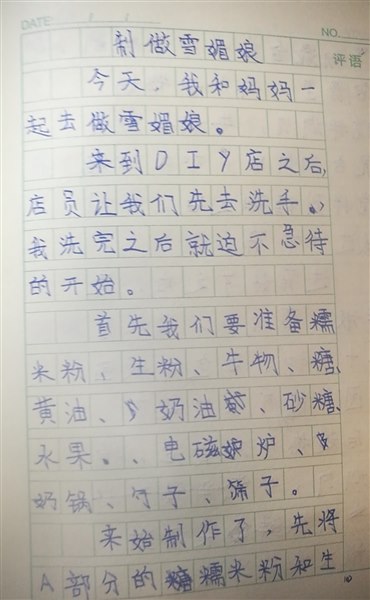 DATE: / /
NO.
评语
制做雪媚娘
今天,我和妈妈一
起去做雪媚娘。
来到DIY店之后,
店员让我们先去洗手。,
我洗完之后就迫不急待
的开始。
首先我们要准备糯
米粉、生粉、牛物、糖、
黄油、奶油、砂糖、
水果。、电磁炉、
奶锅、勺子、筛子。
来始制作了,先将
A部分的糯米粉和生